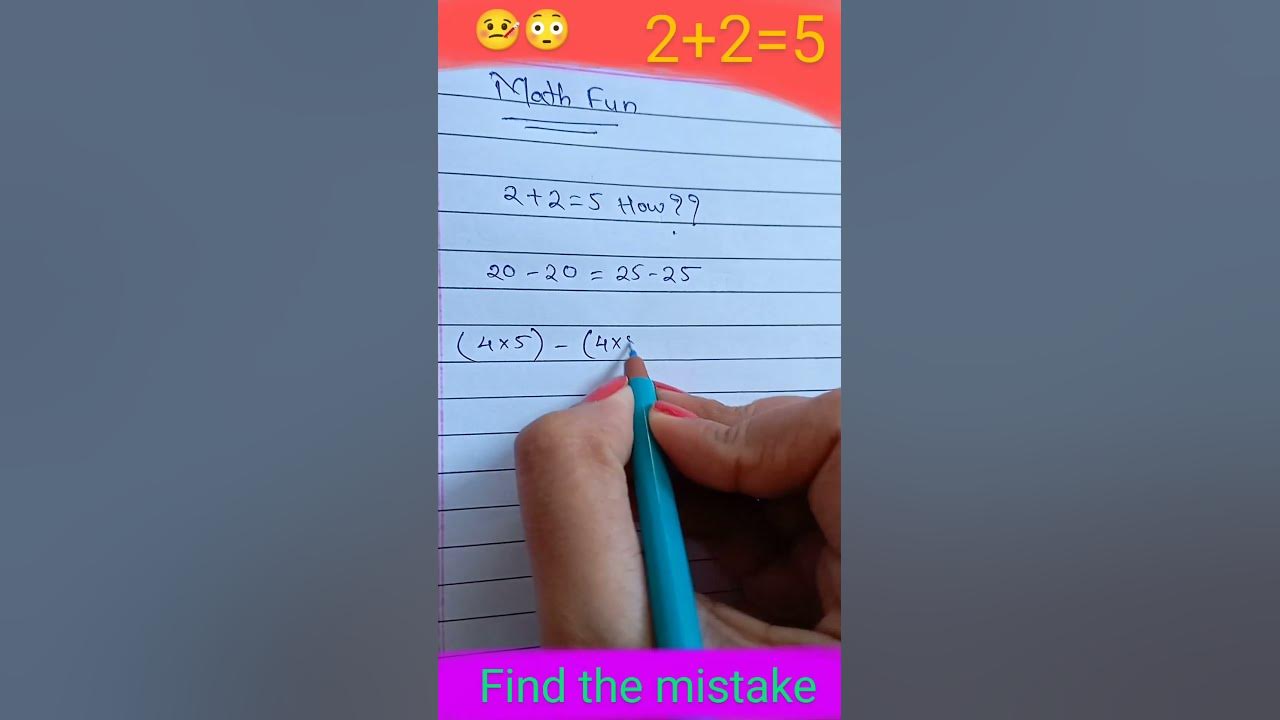 2+2=5
Math Fun
2+2=5 How??
20-20 = 25-25
(4×5) - (4×
Find the mistake